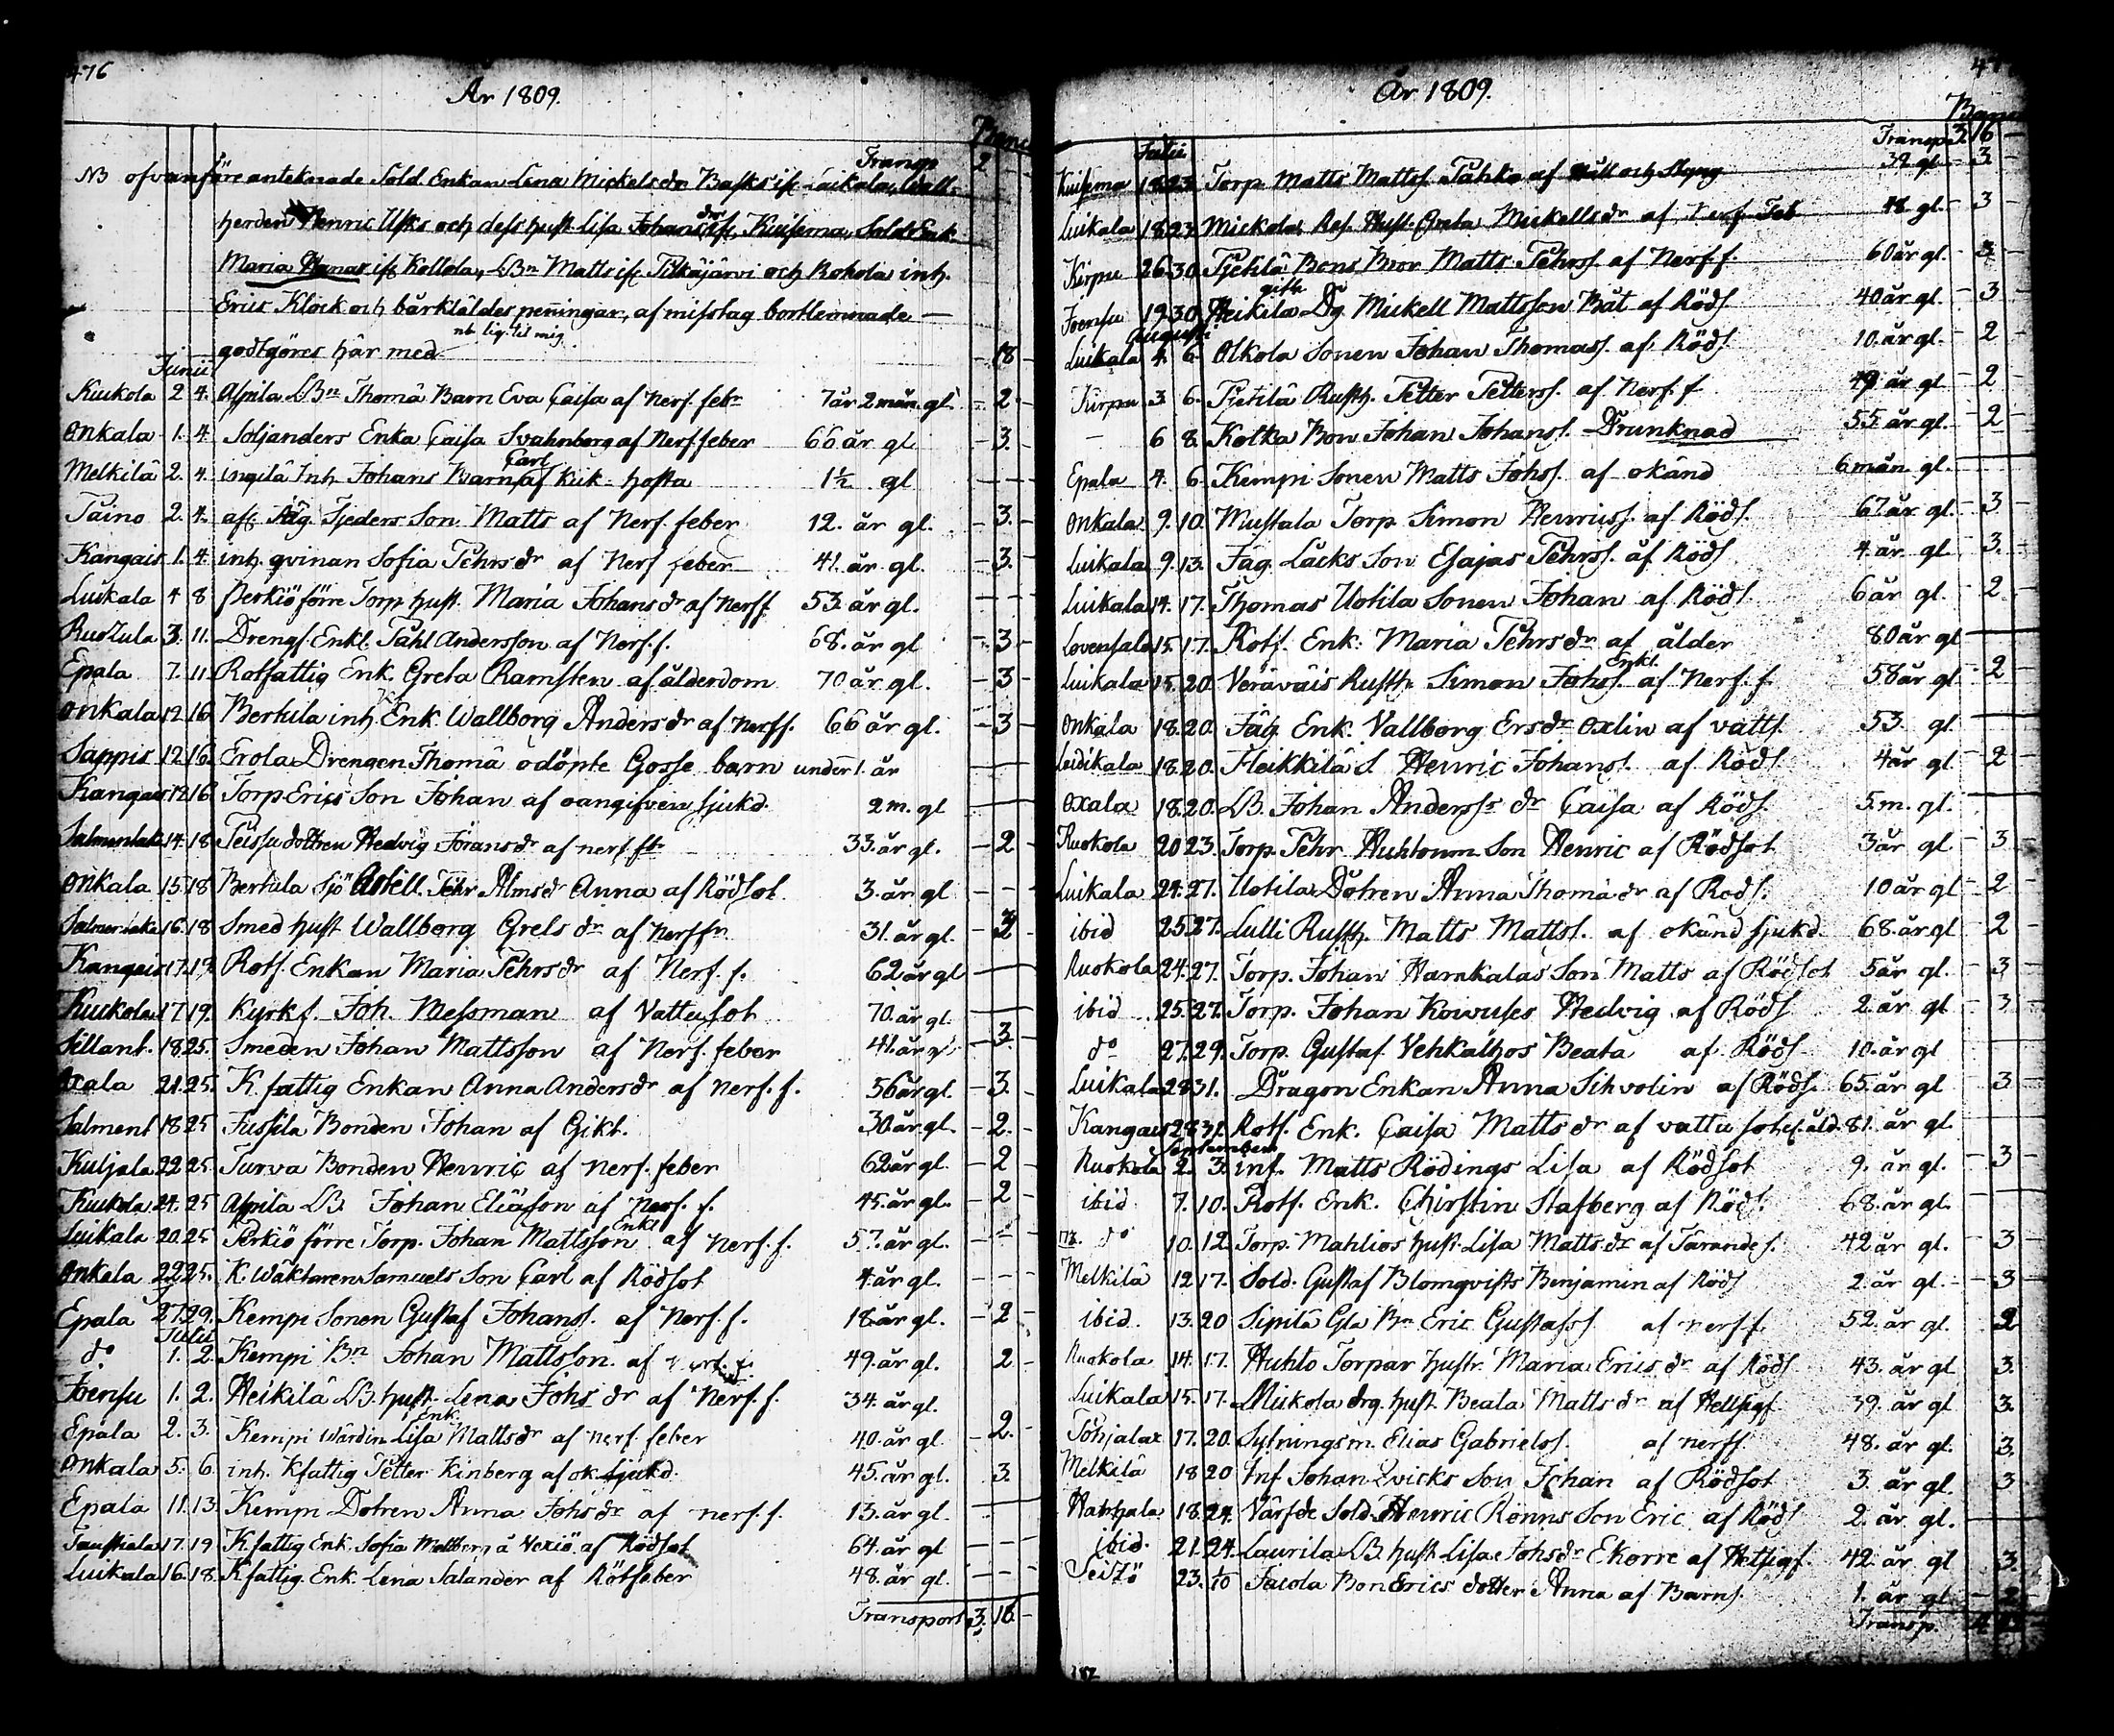 476
År 1809.
Banco
Transp 2 - -
NB ofvanföre anteknade Sold. Enkan Lena Mickelsdr Basks ifr. Luikala, Wall-
herden Henric Usks och dess hust. Lisa Johansdr ifr. Kuisema, Sold Enk
Maria Hanas ifr. Kollola, LBn Matts ifr. Pitkäjärvi och Rohola inh.
Erics Klock och bårklädes peningar, af misstag bortlemnade —
nb lig. til mig
godtgöres här med - 18 -
Junii
Kuckola 2 4. Aspila LBn Thomä Barn Eva Caisa af Nerf. febr 7 år 2 mån. gl - 2 -
Onkala 1. 4 Soljanders Enka Caisa Svahnberg af Nerf feber 66 år gl - 3. -
Melkilä 2. 4. ingilä Inh Johans Barn Carl af kik-hosta 1½ gl - - -
Taino 2. 4. afs. Jäg. Fjeders Son Matts af Nerf. feber 12. år gl. - 3. -
Kangais 1. 4 inh. qvinan Sofia Pehrsdr af Nerf feber 41. år gl. - 3. -
Luikala 4 8 Perkiö förre Torp. hust. Maria Johansdr af Nerff 53. år gl. - - -
3. 11. Drengs. Enkl. Påhl Andersson af Nerf. f. 68. år gl - 3 -
Epala 7. 11 Rotfattig Enk. Greta Ramsten af ålderdom 70 år gl. - 3 -
Onkala 12 16 Bertula inh. Enk. Wallborg Andersdr af Nerff. 66 år gl. - 3 -
Sappis 12 16. Erola Drengen Thomä odöpte Gosse barn under 1. år
Kangais 12 16 Torp Erics Son Johan af oangifven sjukd. 2 m. gl
Salmentaka 14. 18 Peissu dottren Hedvig Jöransdr af nerf. fbr 33. år gl. - 2 -
Onkala 15 18 Bertula Sjö Artill. Pehr Almsdr Anna af Rödsot. 3. år gl - - -
Salmentaka 16. 18 Smed hust Wallborg Grelsdr af Nerffr. 31. år gl. - 2
Kangais 17. 19. Rotf. Enkan Maria Pehrsdr af Nerf. f. 62 år gl
Kuckola 17 19. Kyrkf. Joh. Messman af Vattusot 70. år gl.
Sillant. 18 25. Smeden Johan Mattsson af Nerf. feber 41. år gl - 3. -
Oxala 21. 25. K. fattig Enkan Anna Andersdr af Nerf. f. 56 år gl. - 3. -
Salment 18 25 Jussila Bonden Johan af Gikt. 30 år gl. - 2. -
Kuljala 22 25 Turva Bonden Henric af Nerf. feber 62 år gl. - 2 -
Kuckola 24. 25 Aspila LB. Johan Eliäson af Nerf. f. 45. år gl. - 2 -
Luikala 20. 25 Perkiö förre Torp. Johan Mattsson Enkl af Nerf. f. 57. år gl. - - -
Onkala 22 25. K. Wäktaren Samuels Son Carl af Rödsot 4. år gl. - - -
Epala 27. 29. Kempi Sonen Gustaf Johans. af Nerf. f. 18. år gl. - 2 -
Julii
do 1. 2. Kempi Bn Johan Mattsson. af Nerf. f. 49. år gl. 2 -
Joensu 1. 2. Heikilä LB. hust. Lena Johsdr af Nerf. f. 34. år gl.
Epala 2. 3. Kempi Wärdin Enk. Lisa Mattsdr af nerf. feber 40. år gl. - 2. -
Onkala 5. 6. inh. Kfattig Petter Kinberg af ok. sjukd. 45. år gl. 3.
Epala 11. 13. Kempi Dotren Anna Johsdr af nerf. f. 13. år gl.
17. 19 K.fattig Enk. Sofia à Vexiö af Rödsot 64. år gl - - -
Luikala 16. 18. K.fattig. Enk. Lena Salander af Rötfeber 48. år gl. - - -
Transport 3. 16. -
År 1809.
Banco
Transp 3. 16 -
Julii
Kuisema 18 23 Torp. Matts Matts. Tahko af Håll och Styng 39 gl. - 3 -
Luikala 18. 23. Mickola Res. Hust. Greta Mickellsdr af Nerf. Feb 48 gl. - 3 -
Kirpu 26 30. Pjetilä Bons Bror Matts Pehrss. af Nerf. f. 60 år gl. - 3 -
Joensu 19. 30. Heikilä gifte Dg. Mickell Mattsson Båt af Röds. 40 år gl. - 3
Augusti
Luikala 4. 6. Olkola Sonen Johan Thomas. af Röds. 10. år gl. - 2
Kirpu 3 6. Pjetilä Rusth. Petter Petters. af Nerf. f 49 år gl - 2
— 6 8. Kotka Bon Johan Johans. Drunknad 55. år gl. - 2
Epala 4. 6. Kempi Sonen Matts Johs. af okänd 6 mån. gl.
Onkala 9. 10. Mustala Torp. Simon Henrics. af Röds. 67. år gl. - 3
Luikala 9. 13. Jäg. Läcks Son Esajas Pehrs. af Röds. 4. år gl. - 3.
Luikala 14. 17. Thomas Uotila Sonen Johan af Röds. 6 år gl. - 2.
15. 17. Rotf. Enk. Maria Pehrsdr af ålder 80 år gl
Luikala 15. 20. Rusth. Simon Johs. Enkl. af Nerf. f. 58 år gl - 2
Onkala 18. 20. Jäg. Enk. Vallborg Ersdr Oxlin af vatts. 53. gl.
18. 20. Heikkilä S. Henric Johans. af Röds. 4 år gl - 2
Oxala 18. 20. LB. Johan Anderss dr Caisa af Röds. 5. m. gl.
Ruokola 20 23. Torp. Pehr Huhtoum Son Henric af Rödsot 3 år gl - 3
Luikala 24. 27. Uotila Dotren Anna Thomädr af Röds. 10 år gl - 2
ibid 25 27. Lulli Rusth. Matts Matts. af okänd sjukd. 68. år gl - 2
Ruokola 24. 27. Torp. Johan Hamkalas Son Matts af Rödsot 5 år gl. - 3
ibid 25. 27. Torp. Johan Hedvig af Röds 2. år gl - 3
do 27. 29. Torp. Gustaf Vehkalhos Beata af Röds 10. år gl
Luikala 28 31. Dragon Enkan Anna Sihvolin af Röds. 65. år gl - 3
Kangais 28 31. Rotf. Enk. Caisa Mattsdr af vattu sot åld. 81. år gl
September
Ruokola 2. 3. inf. Matts Rödings Lisa af Rödsot 9. år gl. - 3 -
ibid 7. 10. Rotf. Enk. Chirstin Stafberg af Röds. 68. år gl.
do 10. 12. Torp. Mahlios hust. Lisa Mattsdr af Tärande s. 42 år gl. - 3
Melkilä 12 17. Sold. Gustaf Blomqvists Benjamin af Röds 2. år gl. - 3
ibid. 13. 20 Sipilä Gla Bn Eric Gustafss. af nerff. 52. år gl. 2
Ruokola 14. 17. Huhto Torpar hustr. Maria Ericsdr af Röds 43. år gl. 3.
Luikala 15. 17. Mickola drg. hust. Beata Mattsdr af Hetsigf. 39. år gl 3.
Tohjala 17. 20. Sytningsm. Elias Gabriels. af nerff. 48. år gl. 3.
Melkilä 18 20 Inf Johan Qvicks Son Johan af Rödsot 3. år gl. 3
Hauhjala 18. 24. Värfde Sold. Henric Rönns Son Eric af Röds 2. år gl.
ibid. 21. 24. Laurila LB. hust Lisa Johsdr Ekorre af Hetsigf. 42. år gl 3.
23. Jacola Bon Erics dotter Anna af Barns. 1. år gl - 2 -
Transp.
187